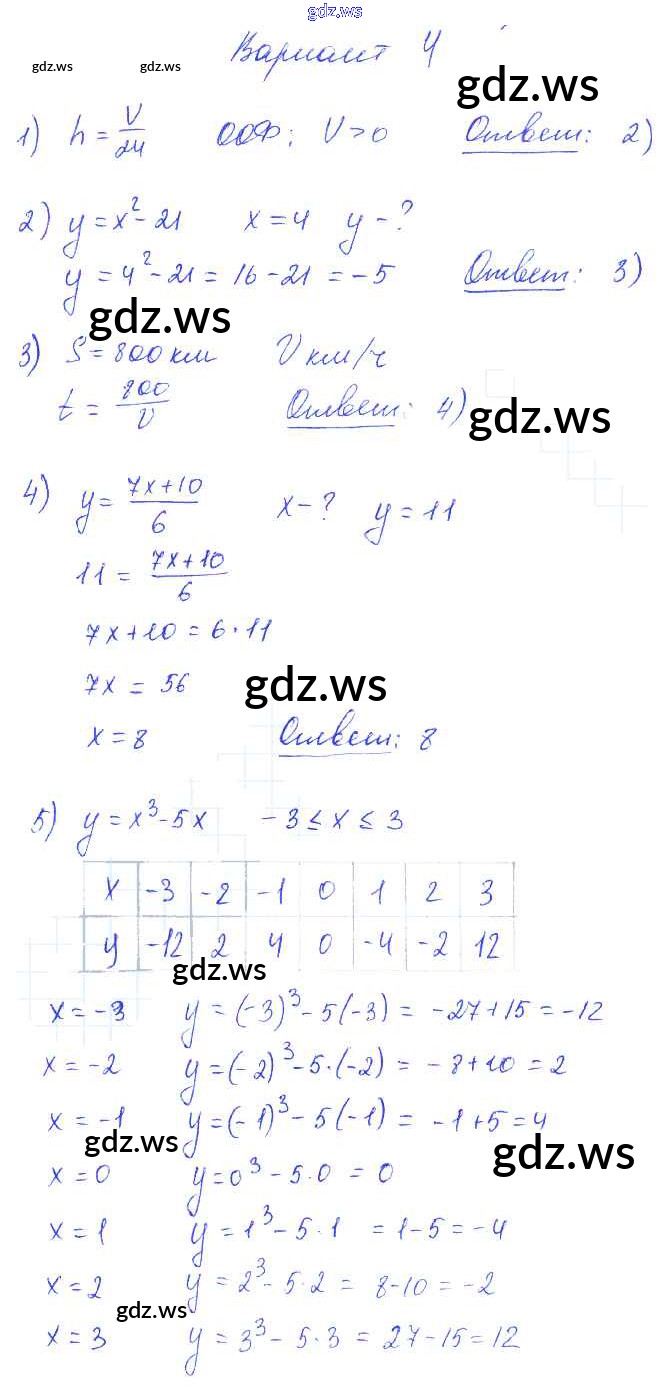 gdz.ws
Вариант 4
gdz.ws gdz.ws gdz.ws
1) h = V/24 ООФ; V>0 Ответ: 2)
2) y = x² - 21 x = 4 y - ?
y = 4² - 21 = 16 - 21 = -5 Ответ: 3)
gdz.ws
3) S = 800 км V км/ч
t = 800/V Ответ: 4)
gdz.ws
4) y = (7x+10)/6 x - ? y = 11
11 = (7x+10)/6
7x+10 = 6·11
7x = 56
gdz.ws
x = 8 Ответ: 8
5) y = x³ - 5x -3 ≤ x ≤ 3
x -3 -2 -1 0 1 2 3
y -12 2 4 0 -4 -2 12
gdz.ws
x = -3 y = (-3)³ - 5(-3) = -27+15 = -12
x = -2 y = (-2)³ - 5·(-2) = -8+10 = 2
x = -1 y = (-1)³ - 5(-1) = -1+5 = 4
gdz.ws gdz.ws
x = 0 y = 0³ - 5·0 = 0
x = 1 y = 1³ - 5·1 = 1-5 = -4
x = 2 y = 2³ - 5·2 = 8-10 = -2
gdz.ws
x = 3 y = 3³ - 5·3 = 27-15 = 12